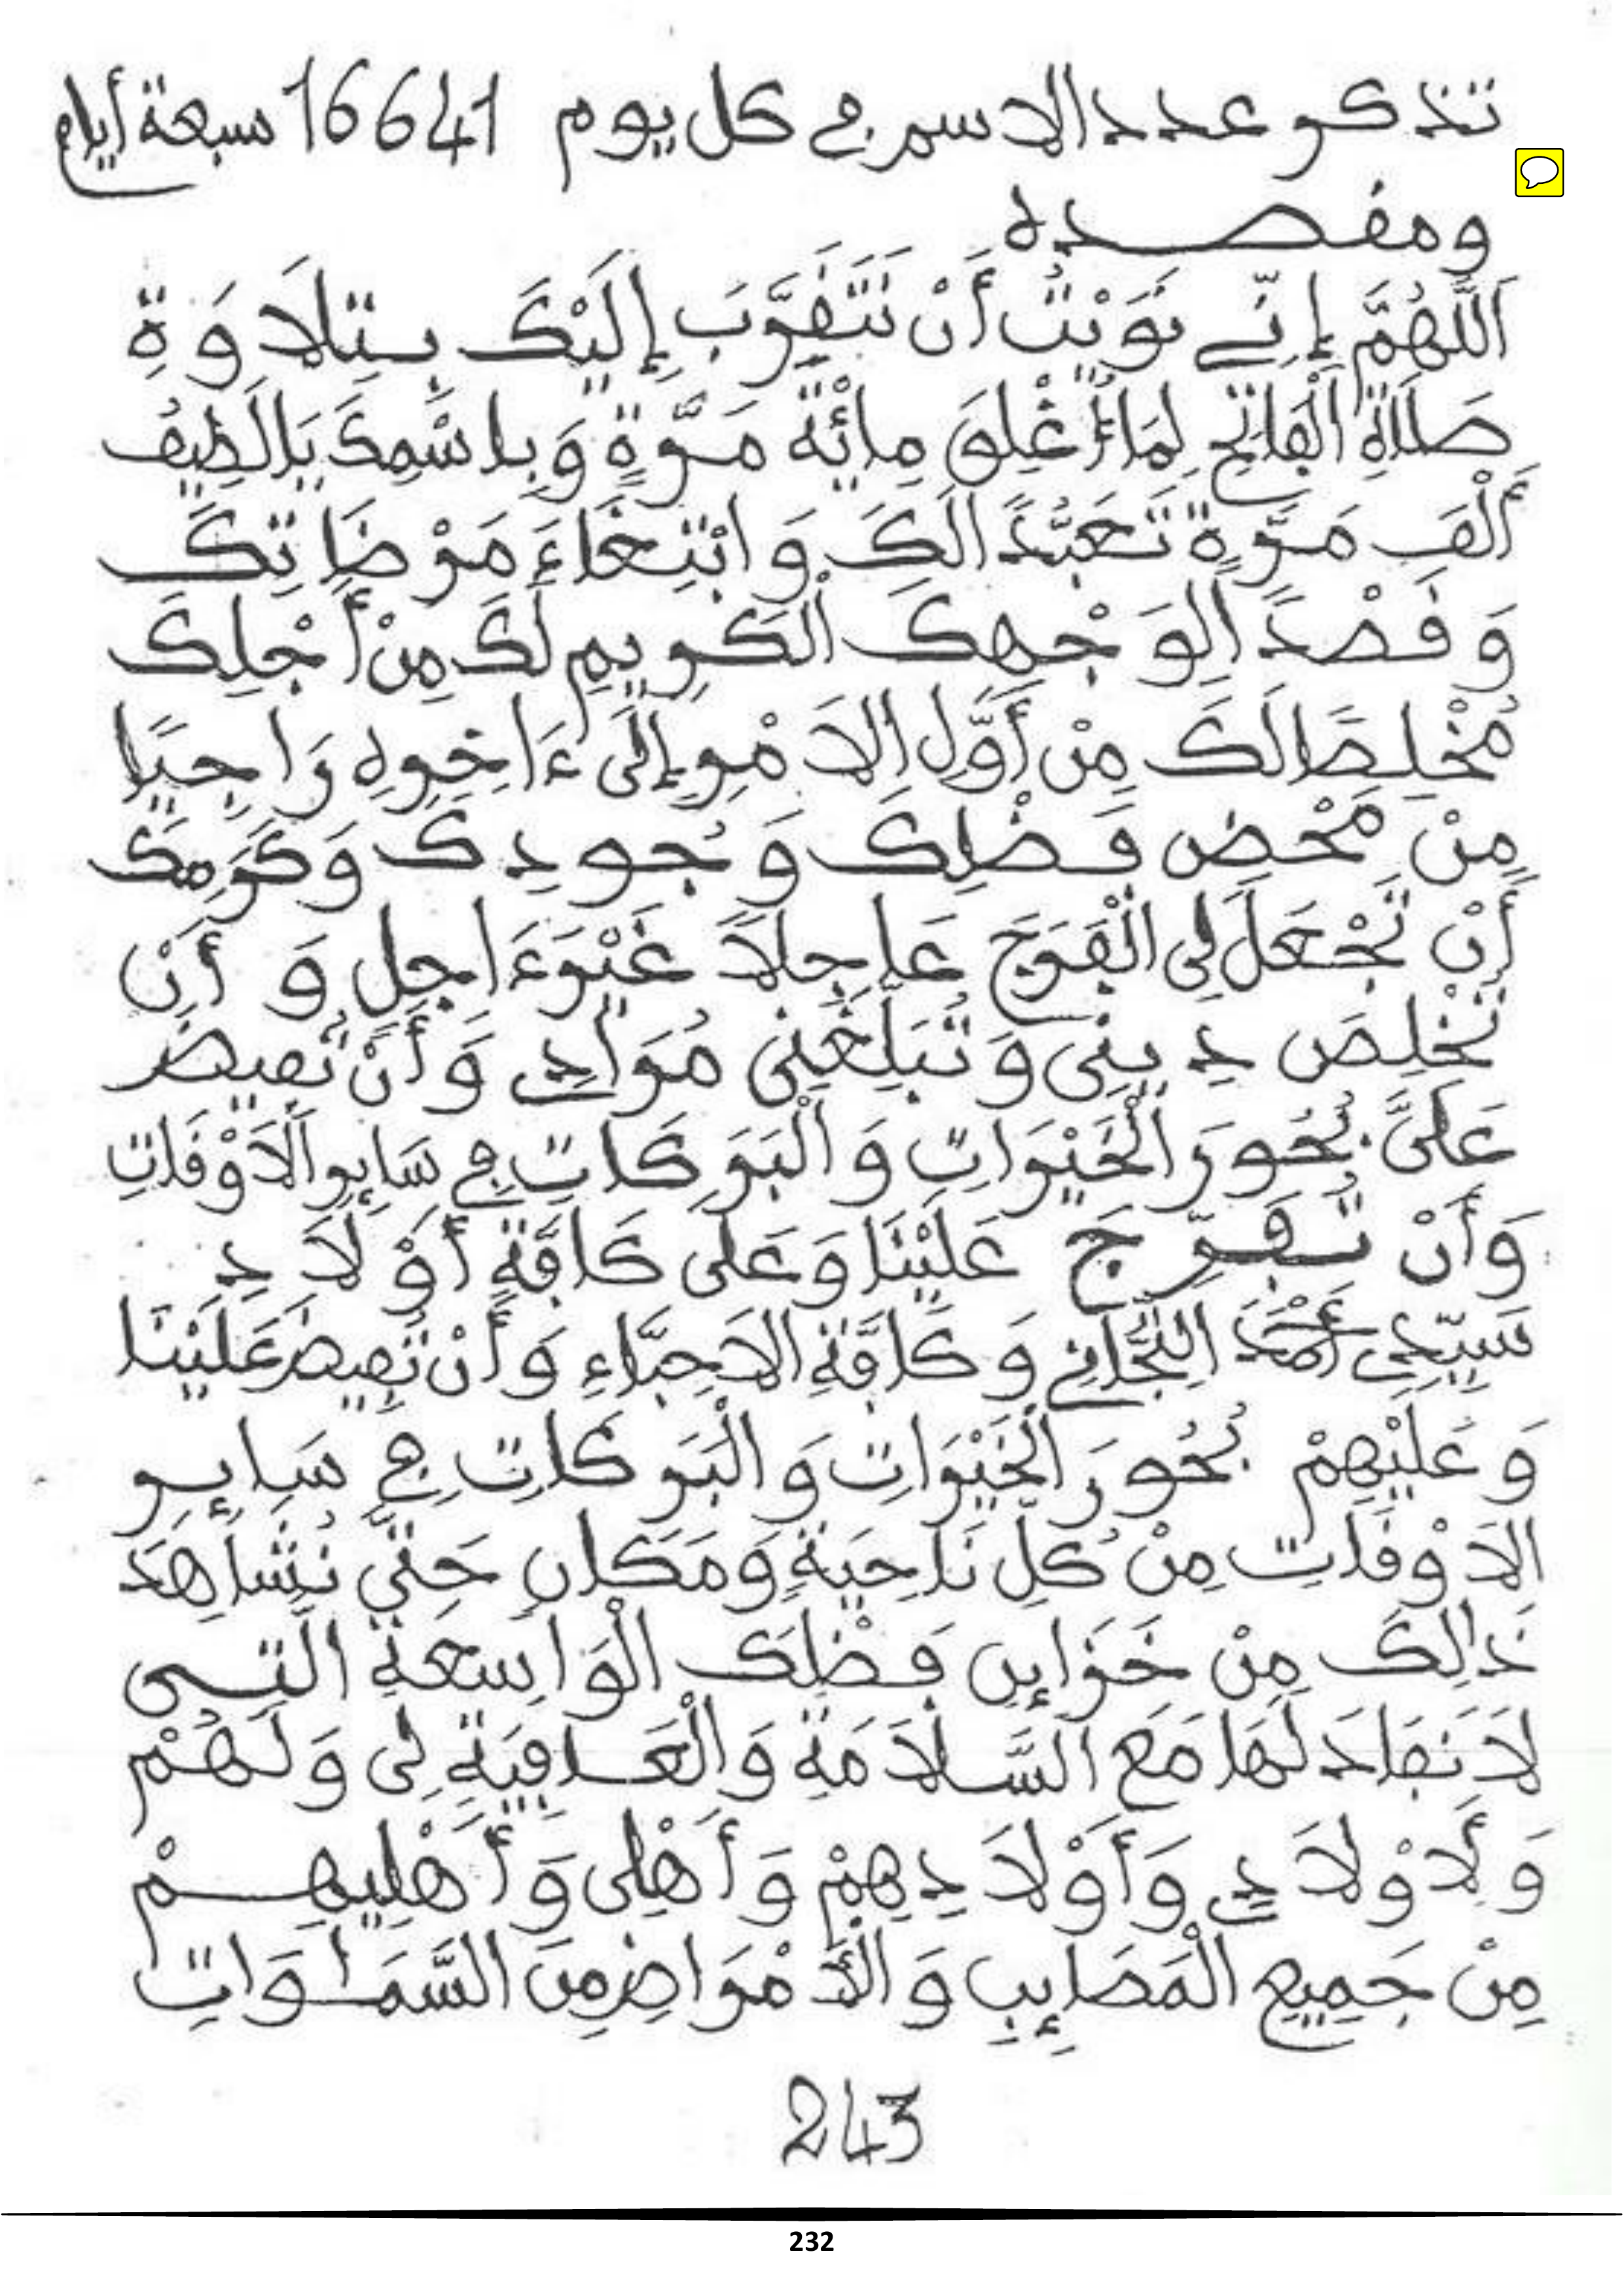 تذكر عدد الاسم في كل يوم 16641 سبعة أيام
ومقصده
اَللَّهُمَّ إِنِّي نَوَيْتُ أَنْ نَتَقَرَّبَ إِلَيْكَ بِتِلَاوَةِ
صَلَاةِ الْفَاتِحِ لِمَا أُغْلِقَ مِائَةَ مَرَّةٍ وَبِاسْمِكَ يَا لَطِيفُ
أَلْفَ مَرَّةٍ تَعَبُّدًا لَكَ وَابْتِغَاءَ مَرْضَاتِكَ
وَقَصْدًا لِوَجْهِكَ الْكَرِيمِ لَكَ مِنْ أَجْلِكَ
مُخْلِصًا لَكَ مِنْ أَوَّلِ الَامْرِ إِلَى ءَاخِرِهِ رَاجِيًا
مِنْ مَحْضِ فَضْلِكَ وَجُودِكَ وَكَرَمِكَ
أَنْ تَجْعَلَ لِى الْفَرَجَ عَاجِلًا غَيْرَ ءَاجِلٍ وَأَنْ
تُخْلِصَ دِينِى وَتُبَلِّغَنِى مُرَادِي وَأَنْ تُفِيضَ
عَلَىَّ بُحُورَ الْخَيْرَاتِ وَالْبَرَكَاتِ فِي سَايِرِ الَاوْقَاتِ
وَأَنْ تُفَرِّجَ عَلَيْنَا وَعَلَى كَافَّةِ أَوْلَادِ
سَيِّدِي أَحْمَدَ التِّجَانِي وَكَافَّةِ الَاحِبَّاءِ وَأَنْ تُفِيضَ عَلَيْنَا
وَعَلَيْهِمْ بُحُورَ الْخَيْرَاتِ وَالْبَرَكَاتِ فِي سَايِرِ
الَاوْقَاتِ مِنْ كُلِّ نَاحِيَةٍ وَمَكَانٍ حَتَّى نُشَاهِدَ
ذَالِكَ مِنْ خَزَايِنِ فَضْلِكَ الْوَاسِعَةِ الَّتِى
لَا نَفَادَ لَهَا مَعَ السَّلَامَةِ وَالْعَافِيَةِ لِى وَلَهُمْ
وَلِأَوْلَادِي وَأَوْلَادِهِمْ وَأَهْلِى وَأَهْلِيهِمْ
مِنْ جَمِيعِ الْمَصَايِبِ وَالَامْرَاضِ مِنَ السَّمَاوَاتِ
243
232